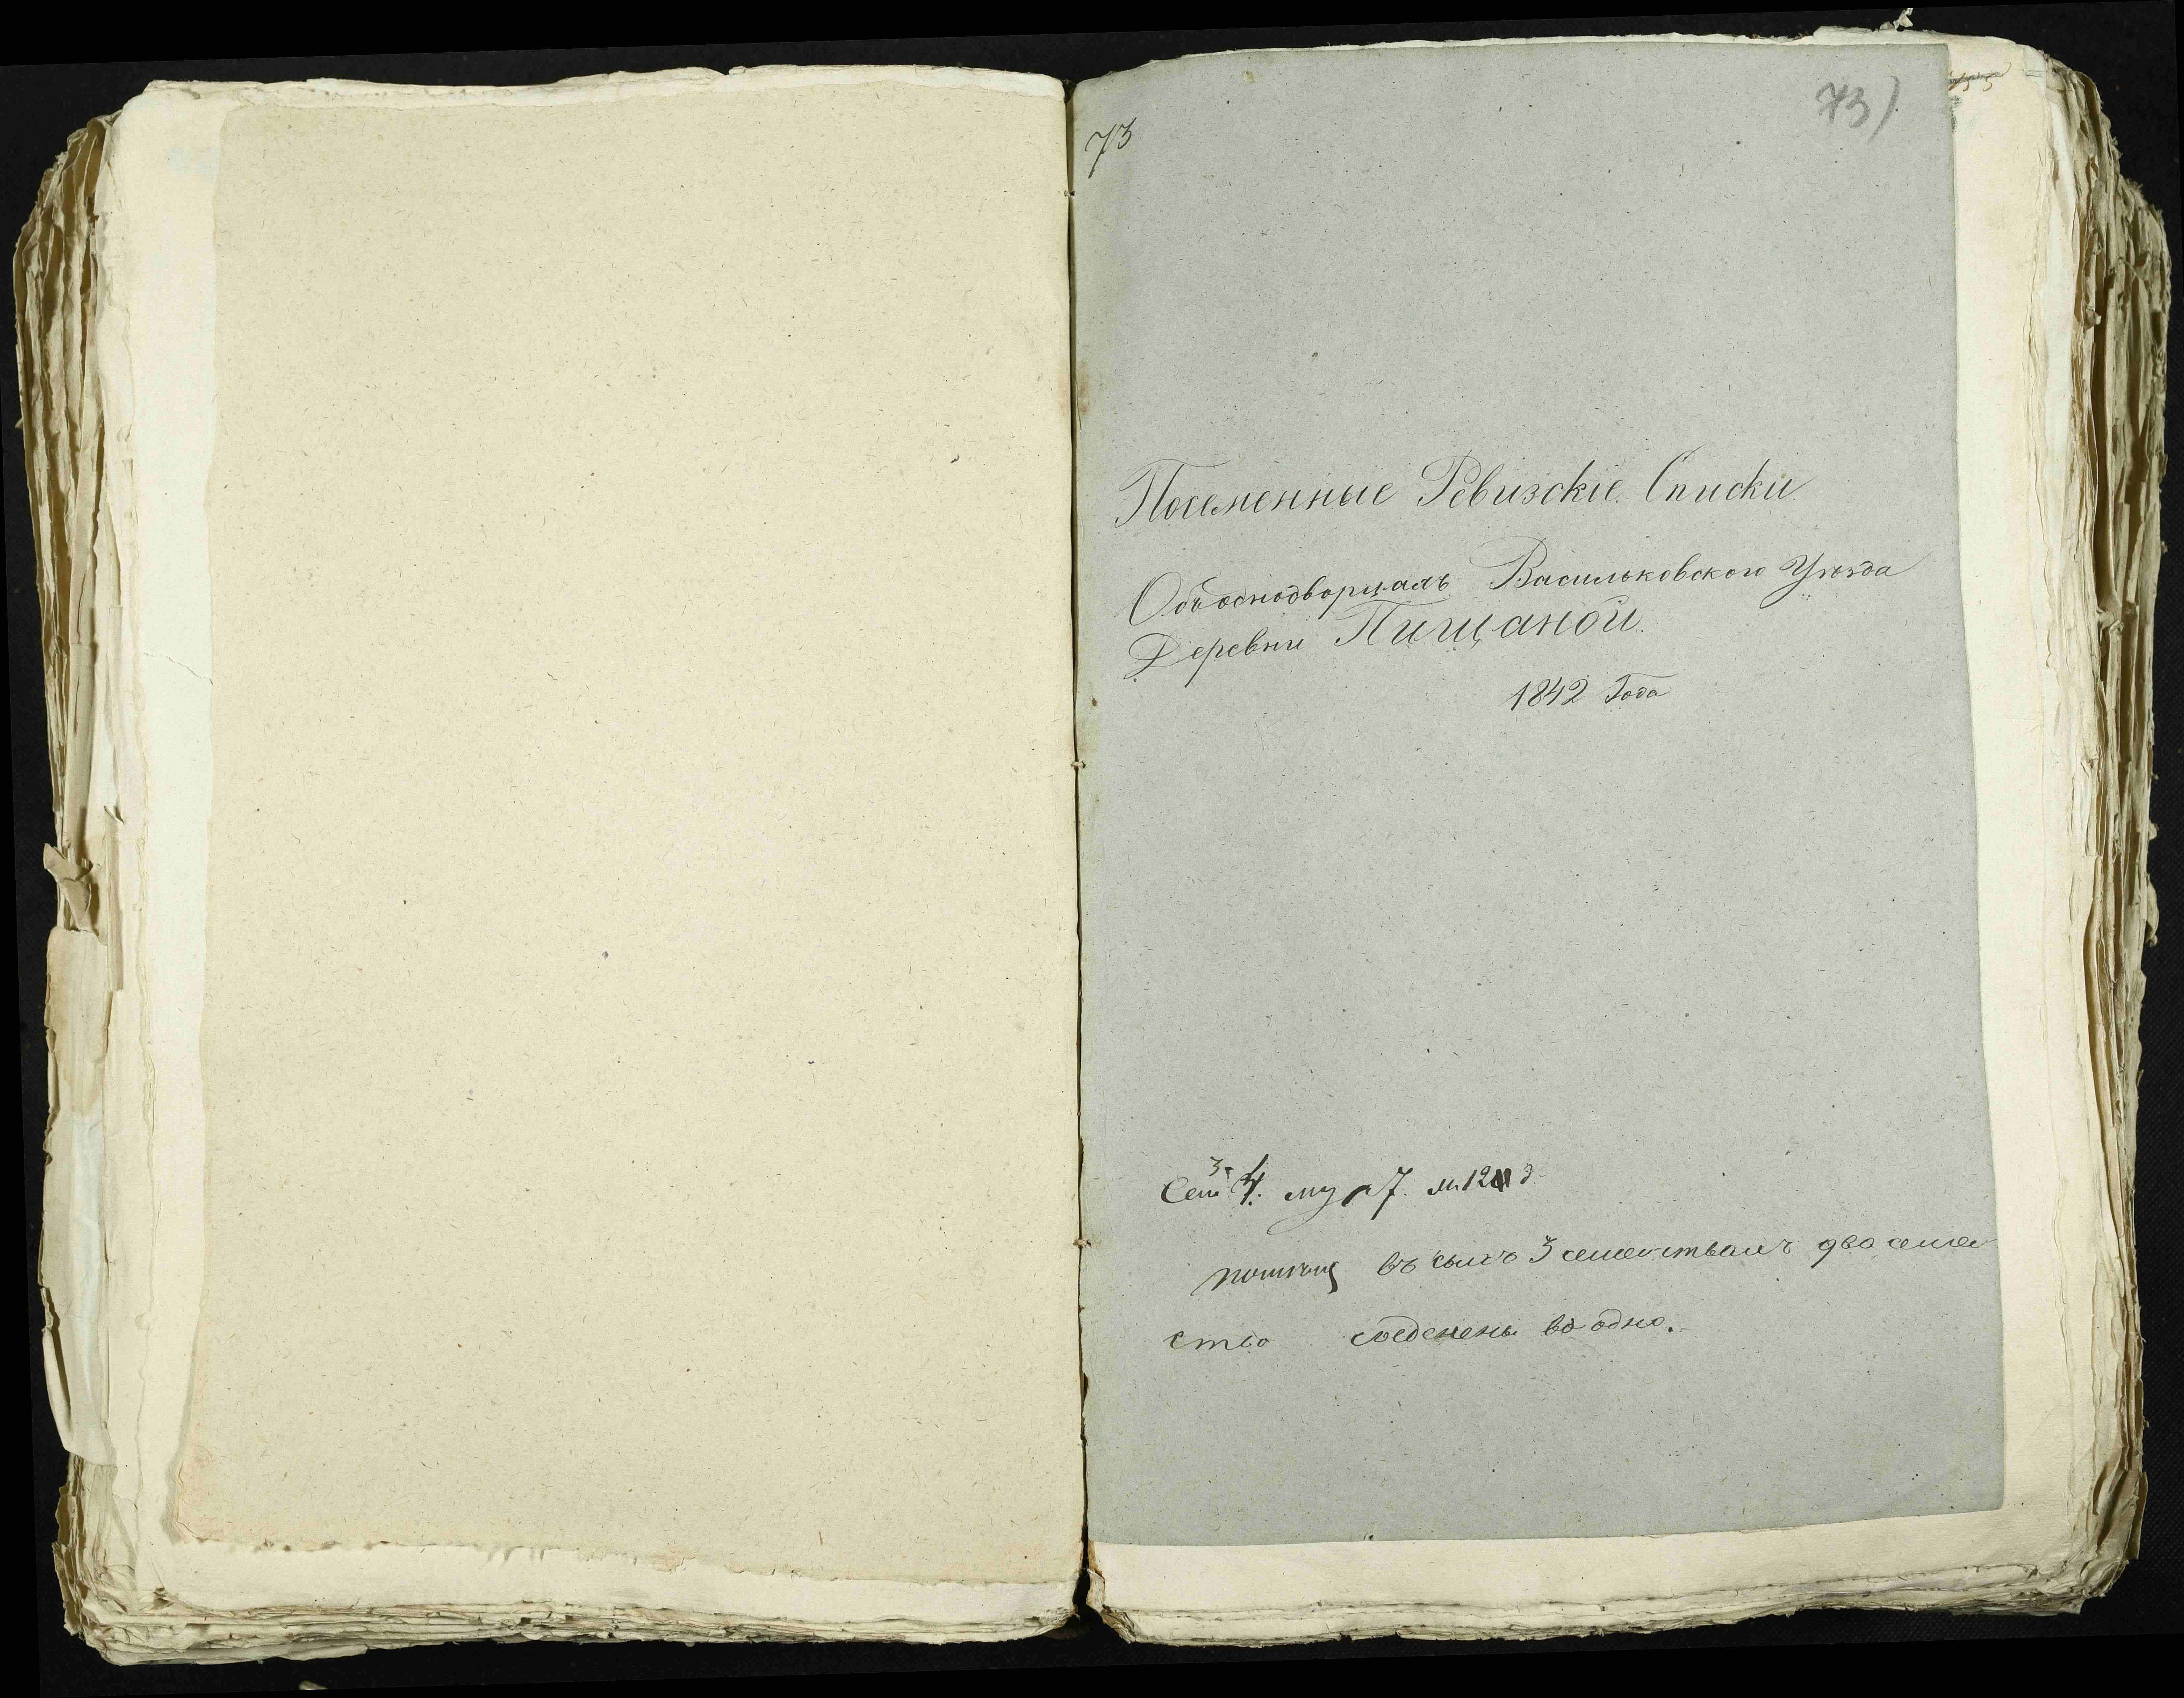 73
73)
Посеменные Ревизскіе Списки
Объ однодворцахъ Васильковского Уѣзда
Деревни Пищаной
1842 Года
3
Сем 4. му 7.
въ 3 семействахъ два семей
ство соеденены во одно.